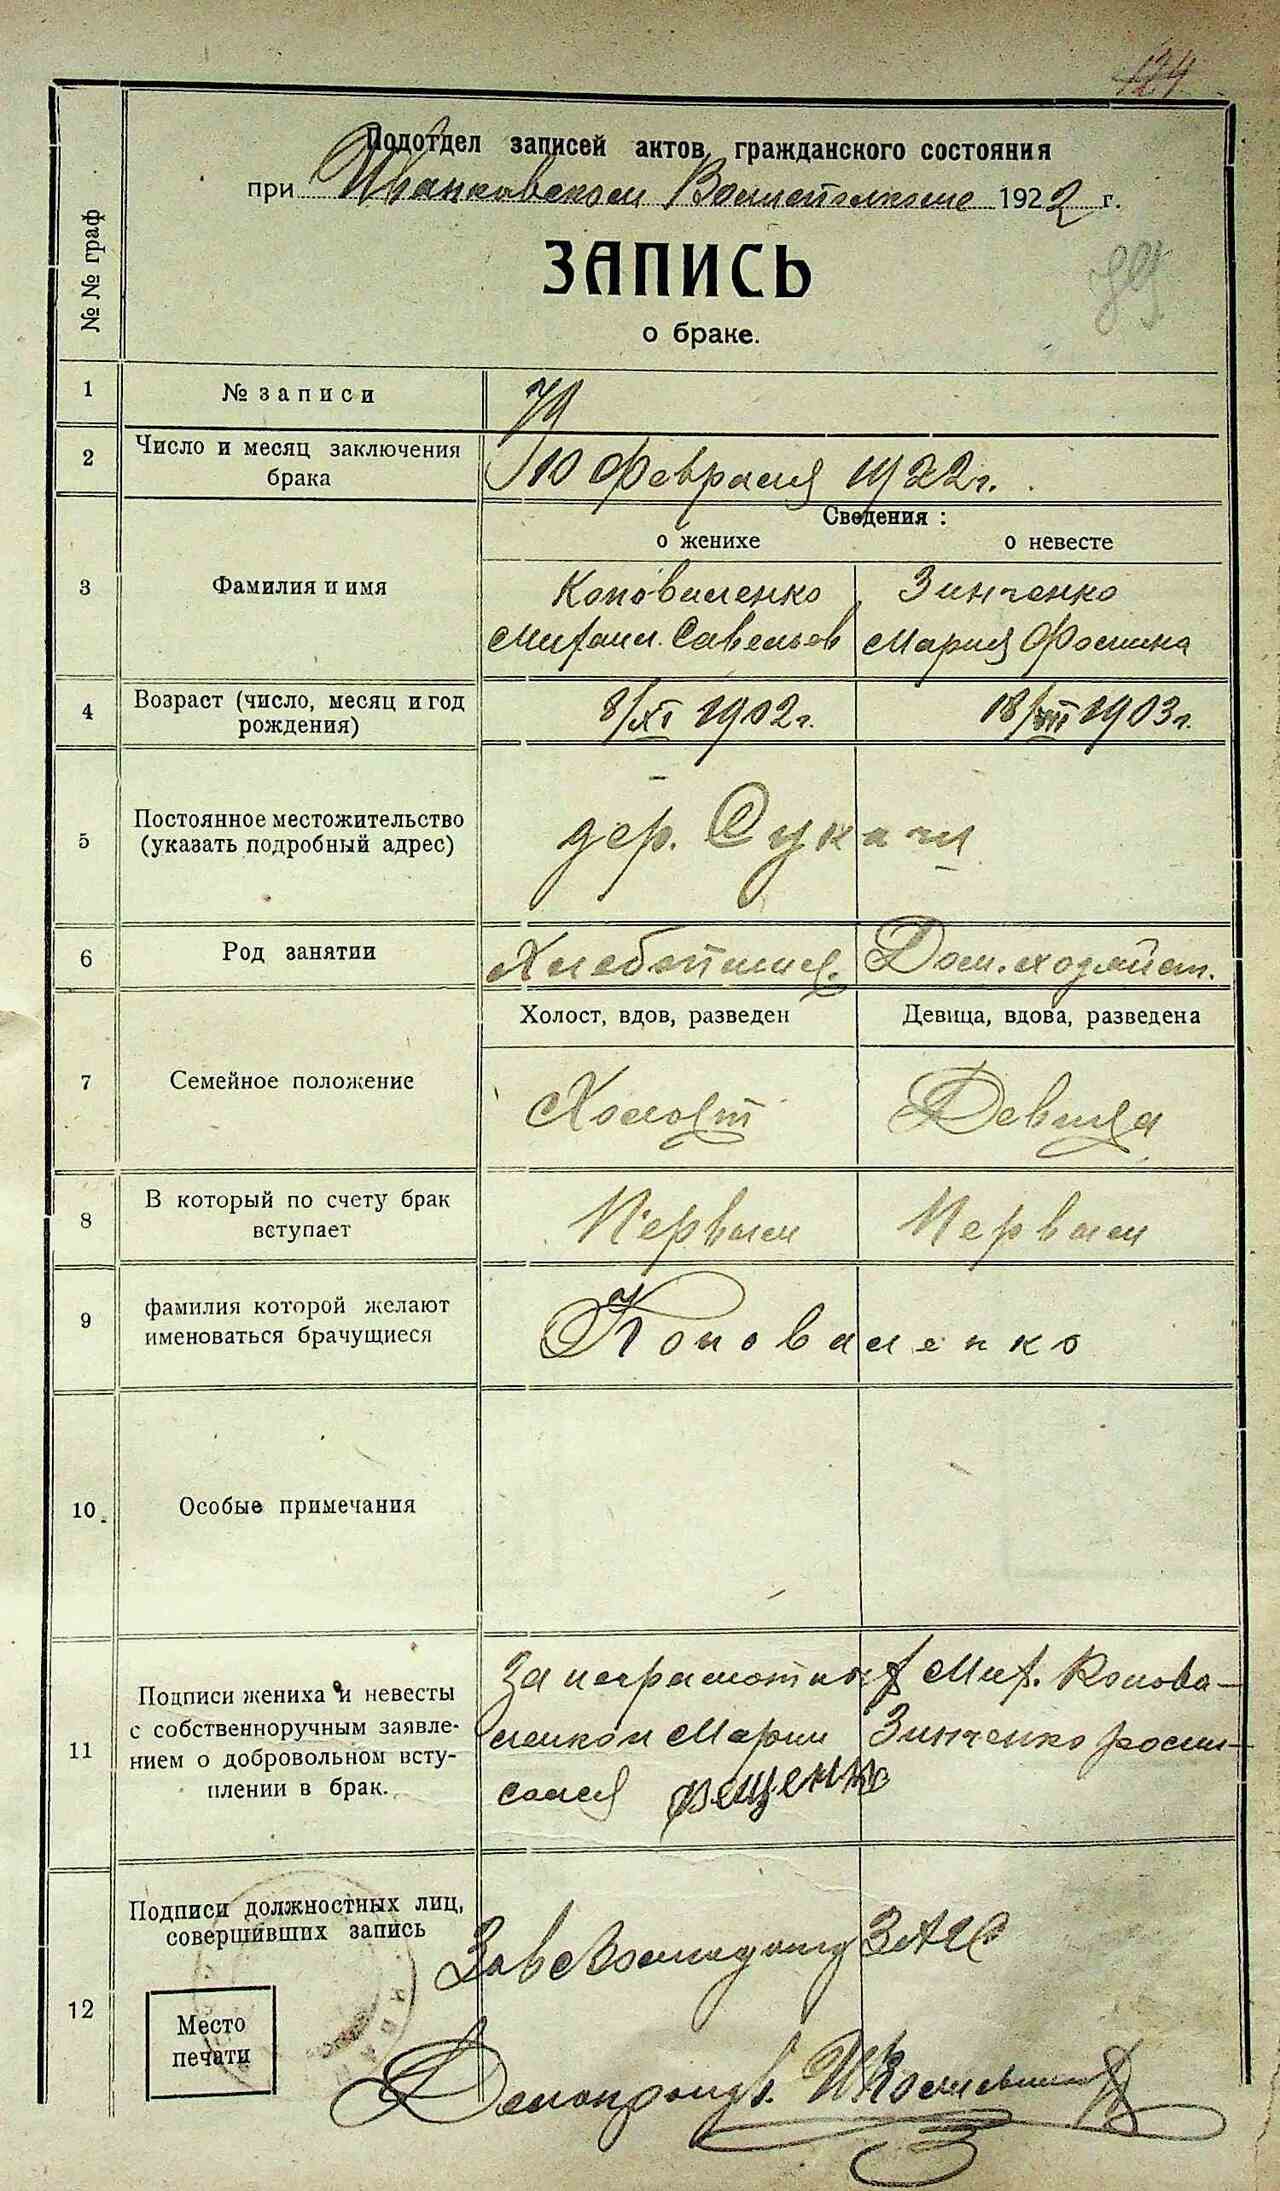 124
Подотдел записей актов гражданского состояния
при Иванковском Волисполкоме 1922 г.
№№ граф
ЗАПИСЬ
79
о браке.
1 № записи 79
2 Число и месяц заключения брака 10 февраля 1922 г.
Сведения:
о женихе о невесте
3 Фамилия и имя Коноваленко Зинченко
Михаил Савельев Мария Фомина
4 Возраст (число, месяц и год рождения) 8/XI 1902 г. 18/VIII 1903 г.
5 Постоянное местожительство (указать подробный адрес) дер. Сукачи
6 Род занятии Хлебопашец. Дом. хозяйст.
Холост, вдов, разведен Девица, вдова, разведена
7 Семейное положение Холост Девица
8 В который по счету брак вступает Первым Первым
9 фамилия которой желают именоваться брачущиеся Коноваленко
10. Особые примечания
11 Подписи жениха и невесты с собственноручным заявлением о добровольном вступлении в брак.
За неграмотных Мих. Конова-
ленкои Марии Зинченко роспи-
сался Фещенко
12 Подписи должностных лиц, совершивших запись
Зав ЗАГС
Место печати
Делопроизв.